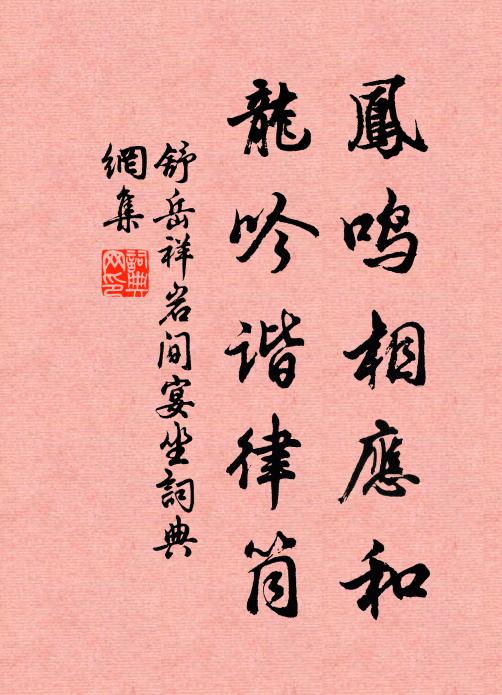 鳳鸣相應和
龍吟谐律筒
舒岳祥岩间宴坐詞典
網集
詞典网印